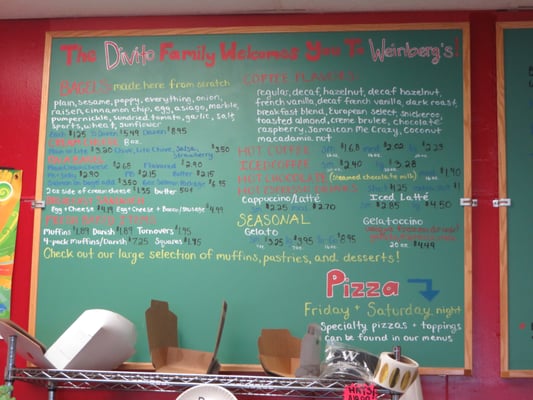 The Divito Family Welcomes You To Weinberg's!
BAGELS made here from scratch
plain, sesame, poppy, everything, onion,
raisin, cinnamon chip, egg, asiago, marble,
pumpernickle, sundried tomato, garlic, salt,
sports, wheat, sunflower
Each $1.25 ½ Dozen $5.49 Dozen $8.95
CREAM CHEESE 8oz.
Plain or Lite $3.20 Chive, Lite Chive, Salsa, Strawberry $3.50
Plain cream cheese $2.65 Flavored $2.90
PB $2.15 Butter $2.15
2oz side of cream cheese $1.35 Butter 50¢
BREAKFAST SANDWICH
Egg + Cheese $4.49 Egg Cheese + Bacon/Sausage $4.99
Muffins $1.89 Danish $1.89 Turnovers $1.95
4-pack Muffins/Danish $7.25 Squares $1.95
Check out our large selection of muffins, pastries, and desserts!
COFFEE FLAVORS
regular, decaf, hazelnut, decaf hazelnut,
french vanilla, decaf french vanilla, dark roast,
breakfast blend, european select, snickeroo,
toasted almond, creme brulee, chocolate
raspberry, Jamaican Me Crazy, coconut
macadamia nut
HOT COFFEE Sm. $1.68 med $2.02 lg $2.29
ICED COFFEE Sm $2.40 lg $3.28
HOT CHOCOLATE (steamed chocolate milk) $1.90
HOT ESPRESSO DRINKS
Cappuccino/Latté
$2.25 $2.70
Iced Latté
Sm $2.85 $4.50
SEASONAL
Gelato
Sm $3.25 lg $3.95 To-Go $8.95
Gelatoccino
20 oz $4.49
Pizza
Friday + Saturday night
Specialty pizzas + toppings
can be found in our menus
W